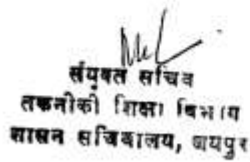 संयुक्त सचिव
तकनीकी शिक्षा विभाग
शासन सचिवालय, जयपुर